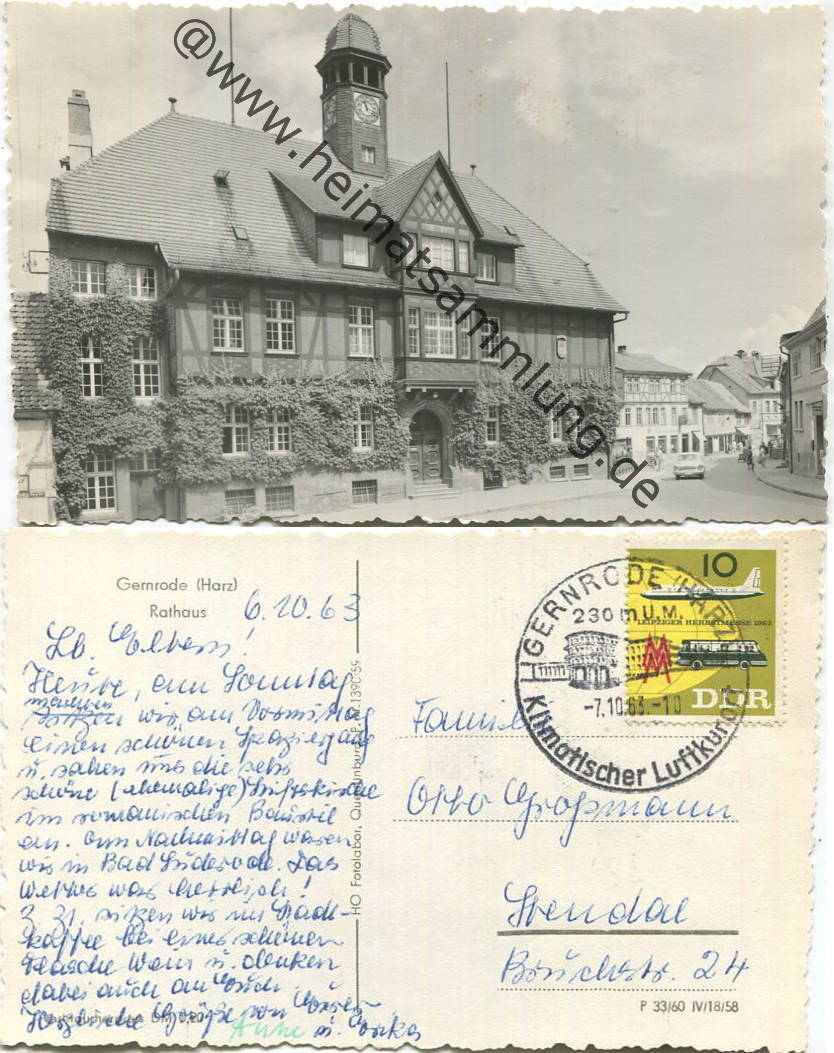 @www.heimatsammlung.de
Gernrode (Harz)
Rathaus
6.10.63
Lb. Eltern!
Heute, am Sonntag
machten wir am Vormittag
einen schönen Spaziergang
u. sahen uns die sehr
schöne (ehemalige) Stiftskirche
im romanischen Baustil
an. Am Nachmittag waren
wir in Bad Suderode. Das
Wetter war herrlich!
Z. Zt. sitzen wir im Stadt-
kaffee bei einer schönen
Flasche Wein u. denken
dabei auch an Euch.
Herzliche Grüße von Eurer
Anne u. Gorka
HO Fotolabor, Quedlinburg
GERNRODE (HARZ)
230 m Ü.M.
-7.10.63.-10
Klimatischer Luftkurort
10
LEIPZIGER HERBSTMESSE 1963
MM
DDR
Familie
Otto Großmann
Stendal
Bruchstr. 24
P 33/60 IV/18/58